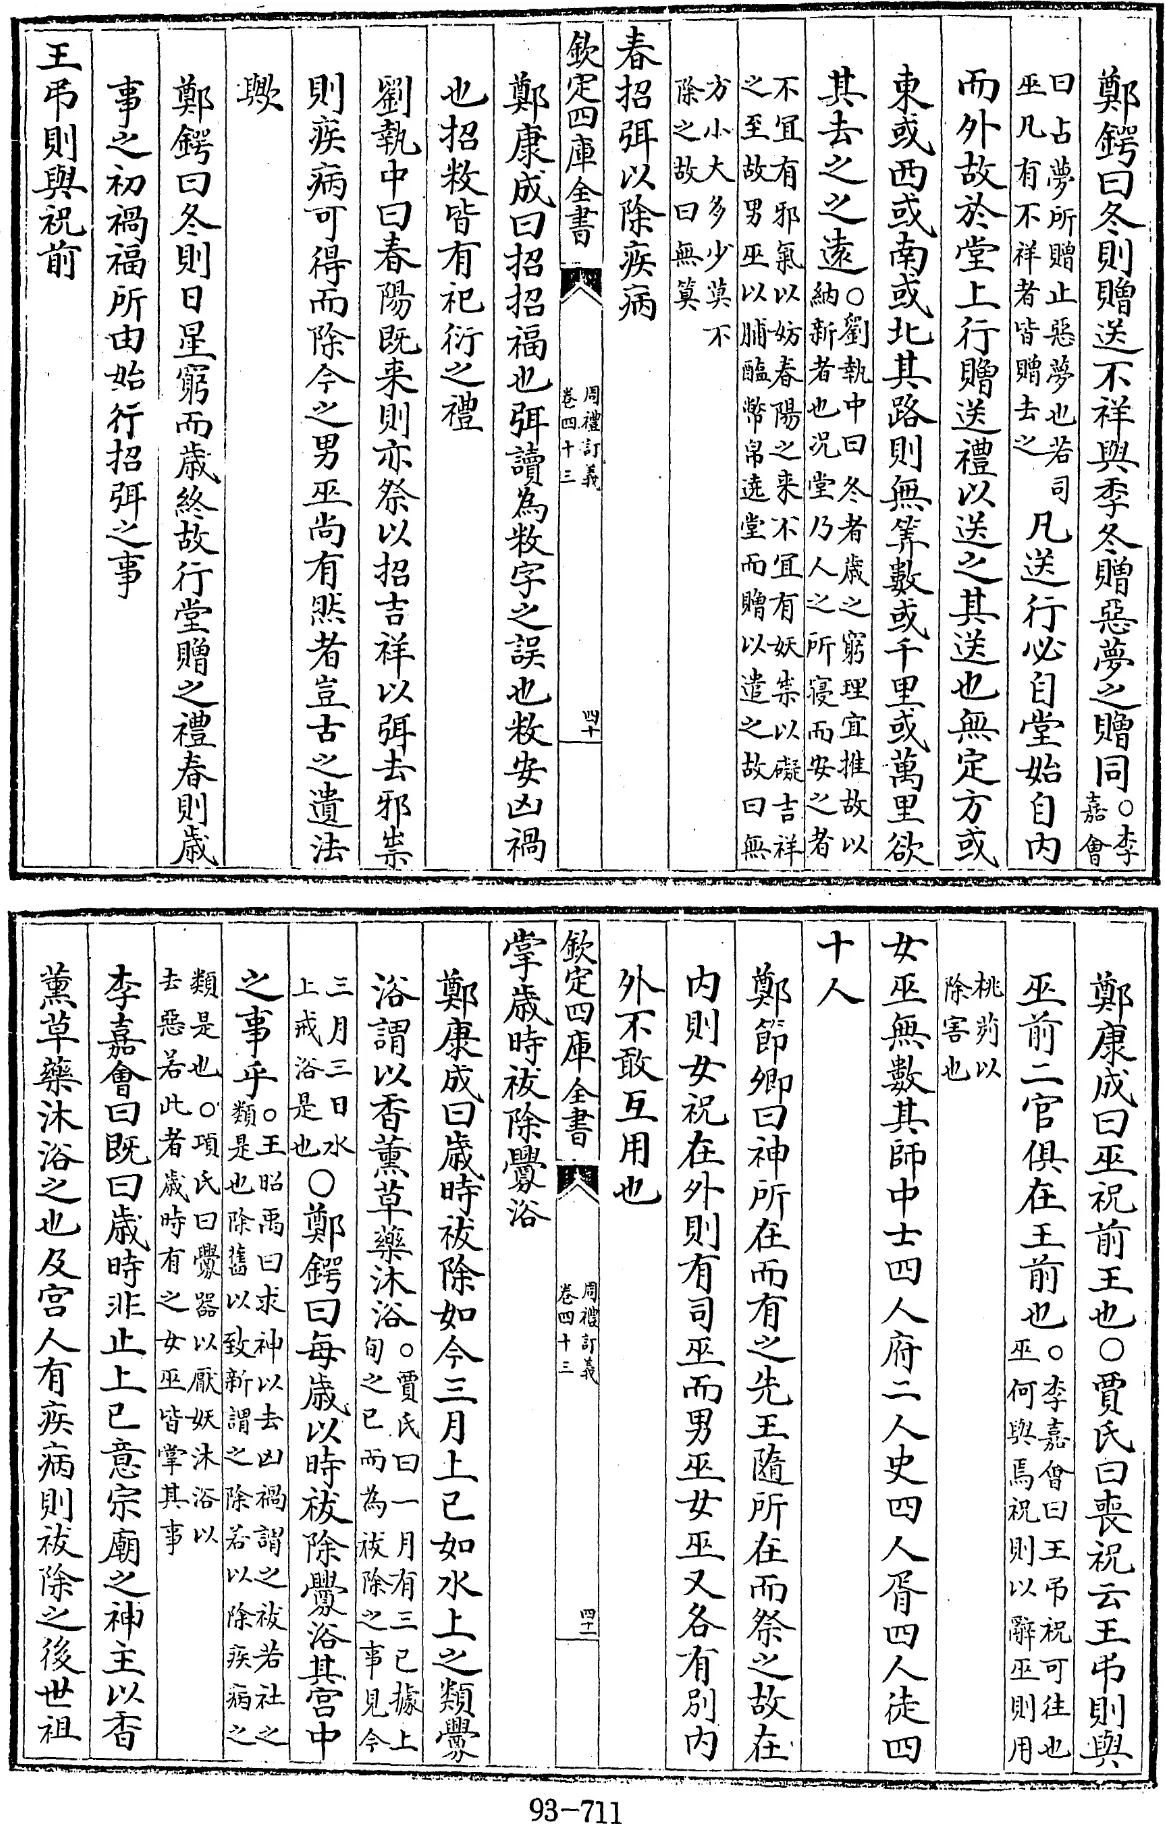 鄭鍔曰冬則贈送不祥與季冬贈惡夢之贈同○李嘉會
曰占夢所贈止惡夢也若司巫凡有不祥者皆贈去之凡送行必自堂始自内
而外故於堂上行贈送禮以送之其送也無定方或
東或西或南或北其路則無筭數或千里或萬里欲
其去之之遠○劉執中曰冬者歲之窮理宜推故以納新者也况堂乃人之所寝而安之者
不宜有邪氣以妨春陽之来不宜有妖祟以礙吉祥之至故男巫以脯醢幣帛遶堂而贈以遣之故曰無
方小大多少莫不除之故曰無筭
春招弭以除疾病
欽定四庫全書 周禮訂義 卷四十三 四十
鄭康成曰招招福也弭讀為敉字之誤也敉安凶禍
也招敉皆有祀衍之禮
劉執中曰春陽既来則亦祭以招吉祥以弭去邪祟
則疾病可得而除今之男巫尚有然者豈古之遺法
歟
鄭鍔曰冬則日星窮而歲終故行堂贈之禮春則歲
事之初禍福所由始行招弭之事
王弔則與祝前
鄭康成曰巫祝前王也○賈氏曰喪祝云王弔則與
巫前二官俱在王前也○李嘉會曰王弔祝可往也巫何與焉祝則以辭巫則用
桃茢以除害也
女巫無數其師中士四人府二人史四人胥四人徒四
十人
鄭節卿曰神所在而有之先王隨所在而祭之故在
内則女祝在外則有司巫而男巫女巫又各有别内
外不敢互用也
欽定四庫全書 周禮訂義 卷四十三 四十一
掌歲時祓除釁浴
鄭康成曰歲時祓除如今三月上巳如水上之類釁
浴謂以香薰草藥沐浴○賈氏曰一月有三巳據上旬之巳而為祓除之事見今
三月三日水上戒浴是也○鄭鍔曰每歲以時祓除釁浴其宫中
之事乎○王昭禹曰求神以去凶禍謂之祓若社之類是也除舊以致新謂之除若以除疾病之
類是也○項氏曰釁器以厭妖沐浴以去惡若此者歲時有之女巫皆掌其事
李嘉會曰既曰歲時非止上巳意宗廟之神主以香
薰草藥沐浴之也及宫人有疾病則祓除之後世祖
93-711